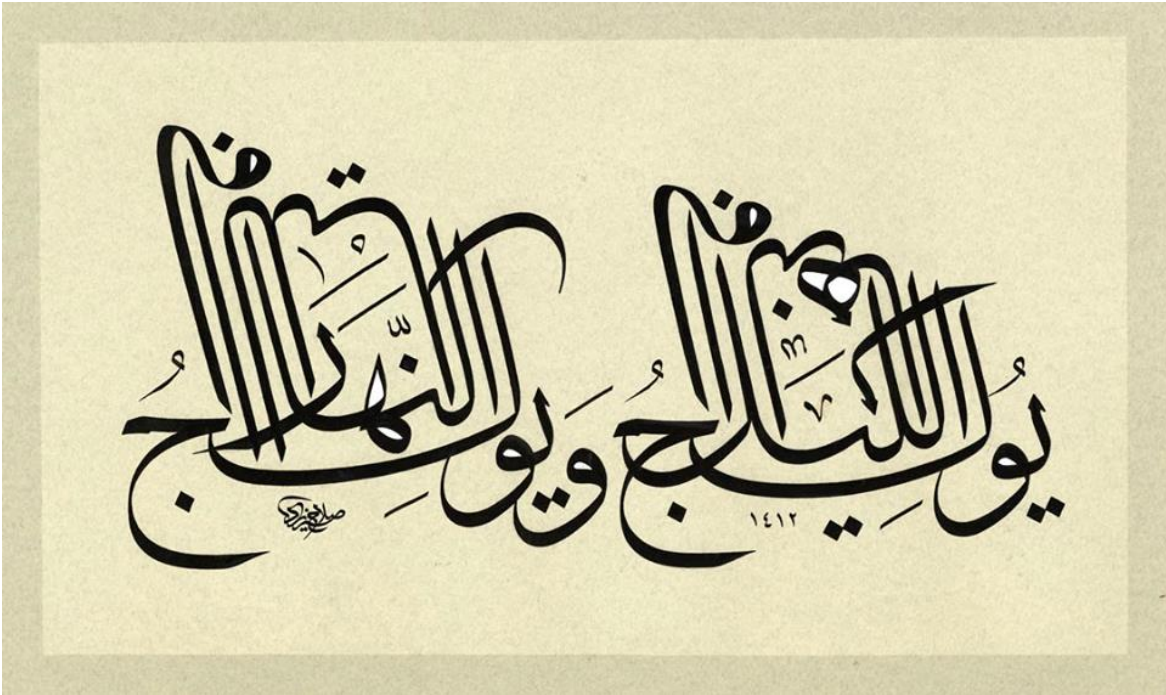 يُولِجُ اللَّيْلَ فِي النَّهَارِ وَيُولِجُ النَّهَارَ فِي اللَّيْلِ
١٤١٢